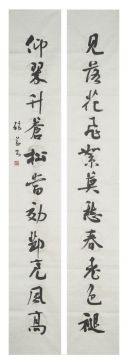 见落花飞絮莫愁春老色褪
仰翠升苍松当效郑亮风高